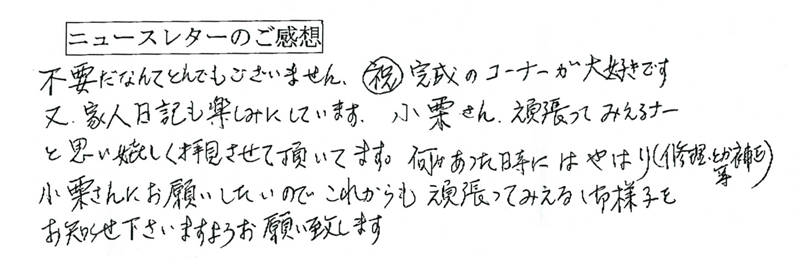 ニュースレターのご感想
不要だなんてとんでもございません、㊗完成のコーナーが大好きです
又、家人日記も楽しみにしています. 小栗さん、頑張ってみえるナー
と思い嬉しく拝見させて頂いてます。何かあった時にはやはり(修理とか補修等)
小栗さんにお願いしたいのでこれからも頑張ってみえる御様子を
お知らせ下さいますようお願い致します